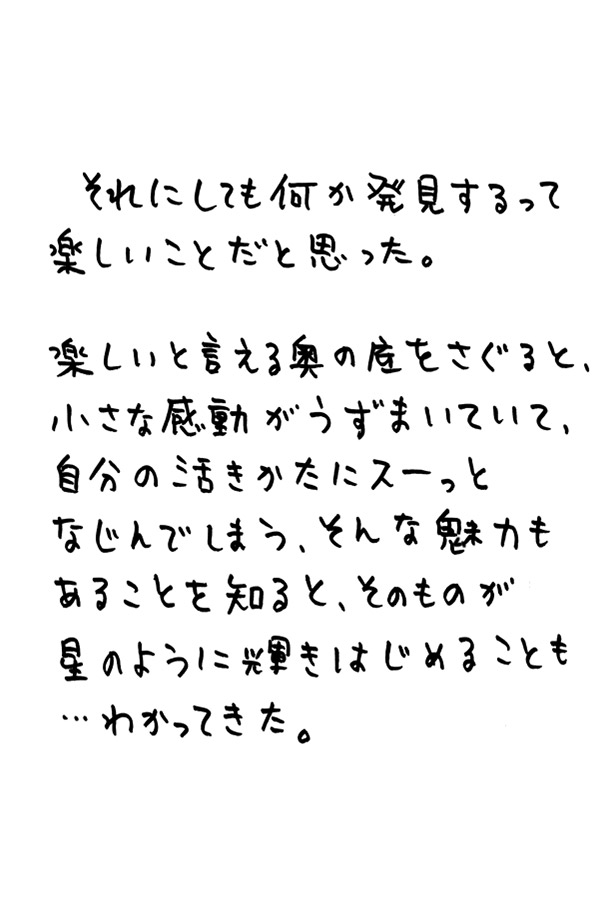 それにしても何か発見するって
楽しいことだと思った。
楽しいと言える奥の底をさぐると、
小さな感動がうずまいていて、
自分の活きかたにスーっと
なじんでしまう、そんな魅力も
あることを知ると、そのものが
星のように輝きはじめることも
…わかってきた。